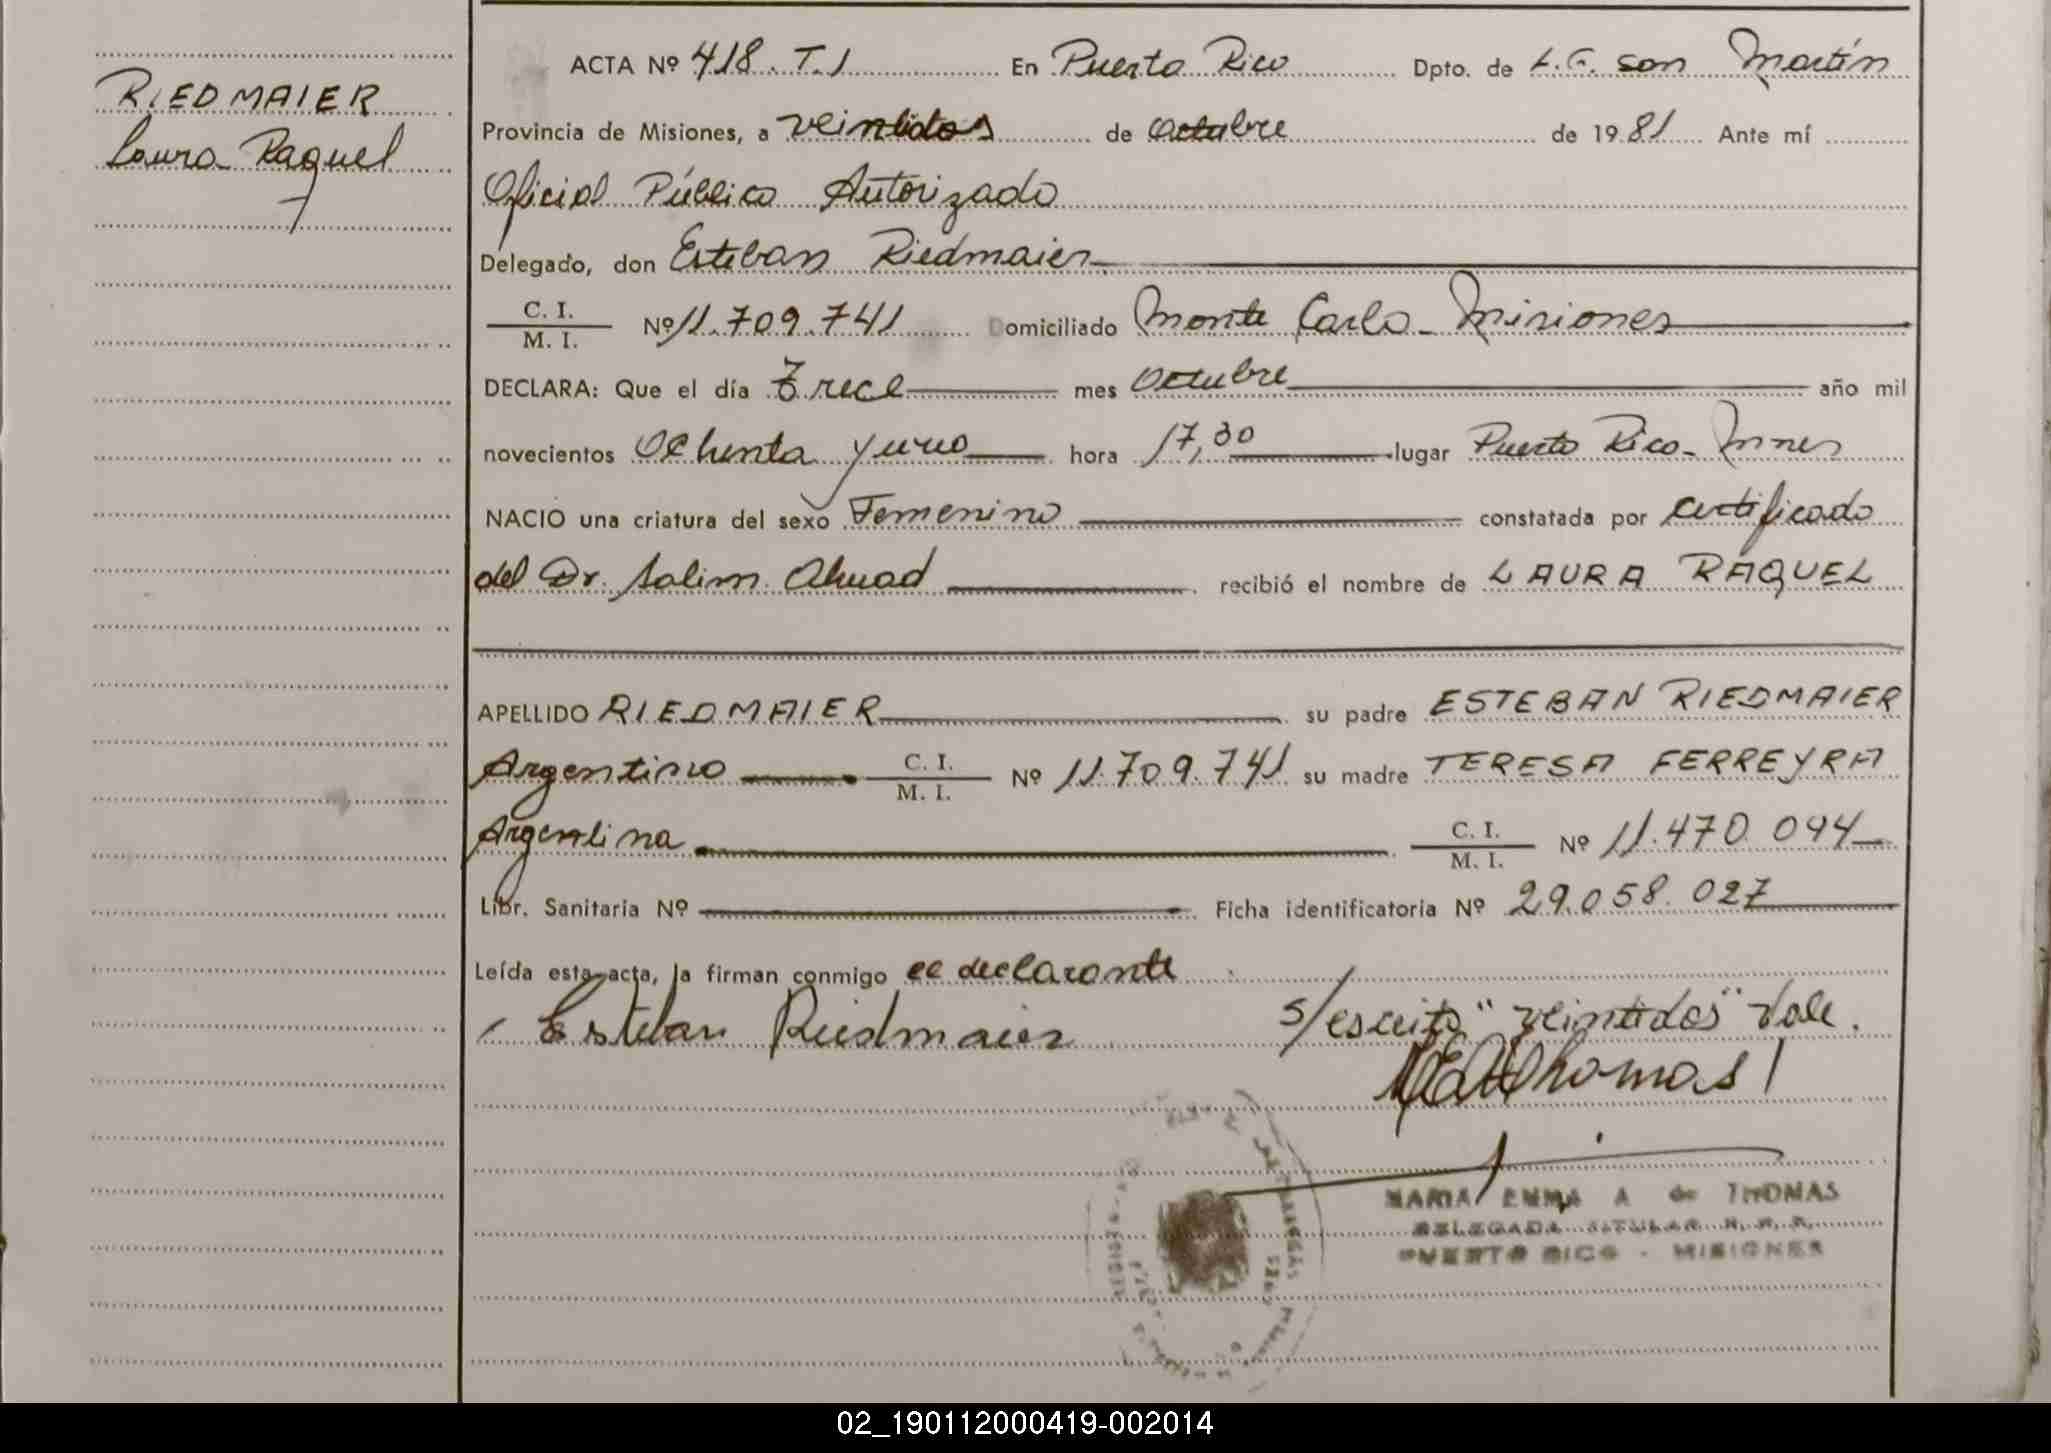 RIEDMAIER
Laura Raquel
ACTA Nº 418. T.I En Puerto Rico Dpto. de L.G. san Martín
Provincia de Misiones, a veintidos de Octubre de 1981 Ante mí
Oficial Público Autorizado
Delegado, don Esteban Riedmaier
C. I.
M. I.
Nº 11.709.741 Domiciliado Monte Carlo - Misiones
DECLARA: Que el día Trece mes Octubre año mil
novecientos Ochenta y uno hora 17,30 lugar Puerto Rico - Mnes
NACIO una criatura del sexo Femenino constatada por certificado
del Dr. Salim Ahuad recibió el nombre de LAURA RAQUEL
APELLIDO RIEDMAIER su padre ESTEBAN RIEDMAIER
Argentino C. I. M. I. Nº 11.709.741 su madre TERESA FERREYRA
Argentina C. I. M. I. Nº 11.470.094
Libr. Sanitaria Nº Ficha identificatoria Nº 29.058.027
Leída esta acta, la firman conmigo el declarante
Esteban Riedmaier S/escrito "veintidos" Vale.
Thomas
MARIA EMMA A de THOMAS
DELEGADA TITULAR
PUERTO RICO - MISIONES
02_190112000419-002014